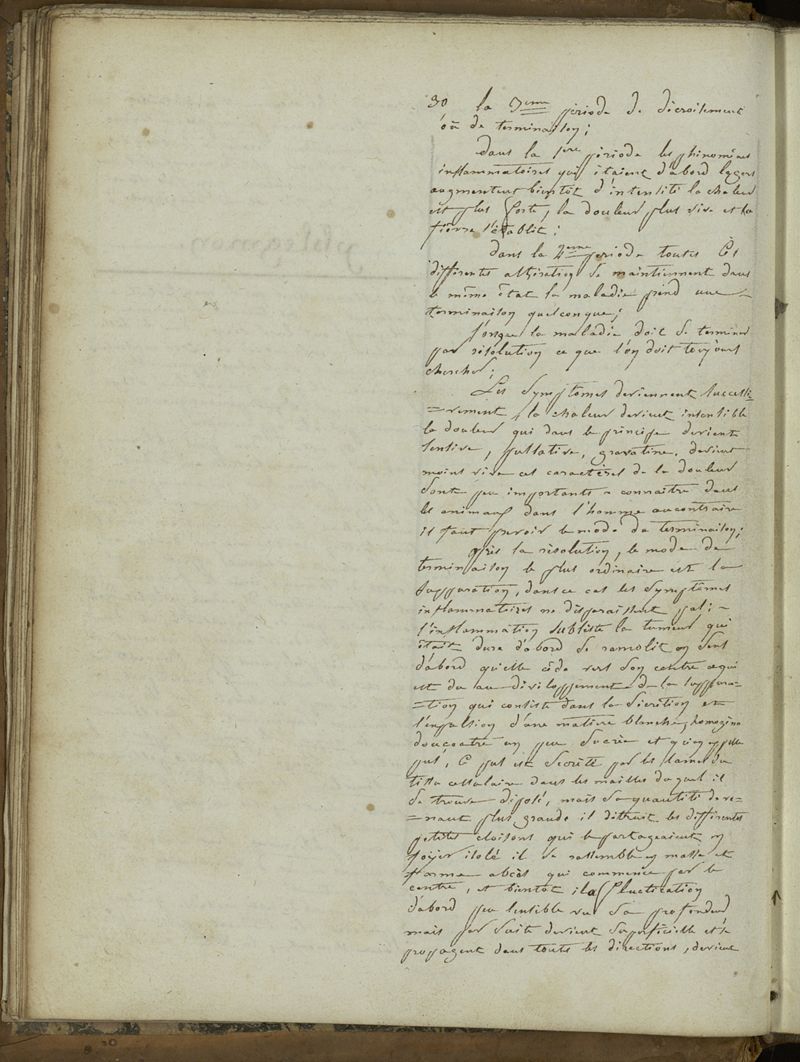 30 la 3eme période de décroitement
óu de terminaison;
dans la 1ere période les phénomènes
inflammatoires qui étaient d'abord legers
augmentent bientôt d'intensité la chaleur
est plus forte, la douleur plus vive et la
fièvre s'établit;
dans la 2eme periode toutes ces
différentes altération se maintiennent dans
le même état la maladie prend une
terminaison quelconque;
lorsque la maladie doit se terminer
par résolution ce que l'on doit toujours
chercher;
Les Symptomes deviennent successi=
=vement, la chaleur devient insensible
la douleur qui dans le principe devient
tensive, pulsative, gravative, devient
moins vive ces caractères de la douleur
sont peu importants a connaitre dans
les animaux dans l'homme aucontraire
il faut prevoir le mode de terminaison;
après la résolution, le mode de
terminaison le plus ordinaire est la
suppuration, dans ce cas les Symptômes
inflammatoires ne disparaissent pas;
l'inflammation subsiste la tumeur qui
était dure d'abord se ramolit on sent
d'abord qu'elle cède vers son centre ce qui
est du au développement de la suppura=
=tion qui consiste dans la sécrétion et
l'expulsion d'une matière blanche, homogène
douçeatre un peu sucrée et qu'on appelle
pus, Ce pus est secrété par les lames du
tissu cellulaire dans les mailles duquel il
se trouve déposé, mais sa quantité deve=
=nant plus grande il détruit les différentes
petites cloisons qui le partageaient en
foyer isolé il se rassemble en masse et
forme abcès qui commence par le
centre, et bientôt il a fluctuation
d'abord peu sensible vu sa profondeur
mais par suite devient superficielle et se
propageant dans toutes les directions, devient